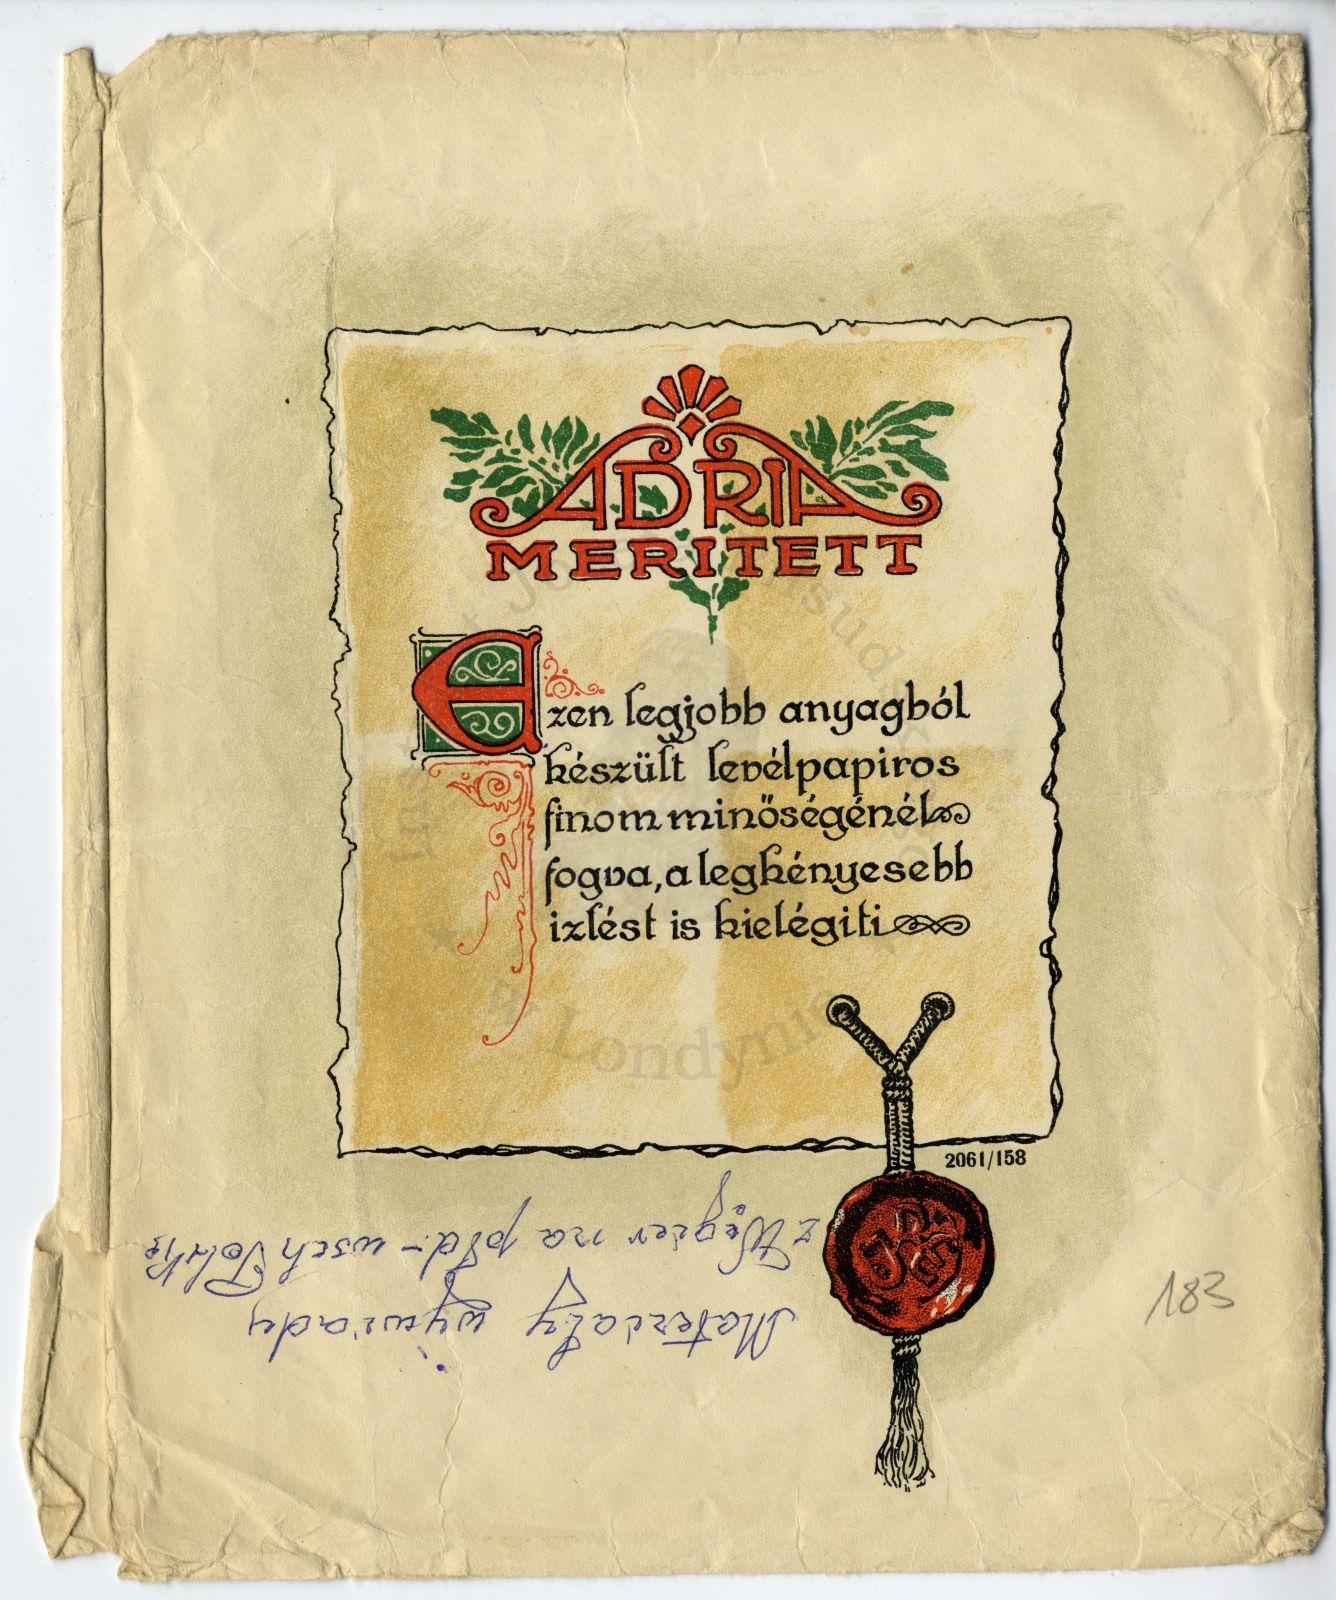 ADRIA
MERITETT
Ezen legjobb anyagból
készült levélpapiros
finom minőségénél
fogva, a legkényesebb
izlést is kielégiti
2061/158
Materiały wywiady
z Węgier na płd-wsch Polskę
183
w Londynie